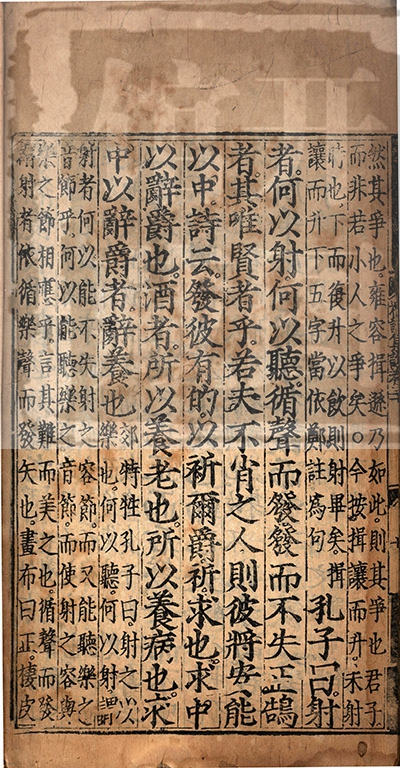 然其爭也。雍容揖遜乃如此。則其爭也君子
而非若小人之爭矣。○今按揖讓而升。未射
時也。下而復升以飲。則射畢矣。揖
讓而升下五字當依鄭註爲句
孔子曰。射
者。何以射何以聽。循聲而發。發而不失正鵠
者。其唯賢者乎。若夫不肖之人。則彼將安能
以中。詩云。發彼有的。以祈爾爵。祈求也。求中
以辭爵也。酒者。所以養老也。所以養病也。求
中以辭爵者。辭養也
郊特牲孔子曰。射之以
樂也。何以聽。何以射。謂
射者何以能不失射之容節。而又能聽樂之
音節乎。何以能聽樂之音節。而使射之容與
樂之節相應乎。言其難而美之也。循聲而發
謂射者依循樂聲而發矢也。畫布曰正。棲皮